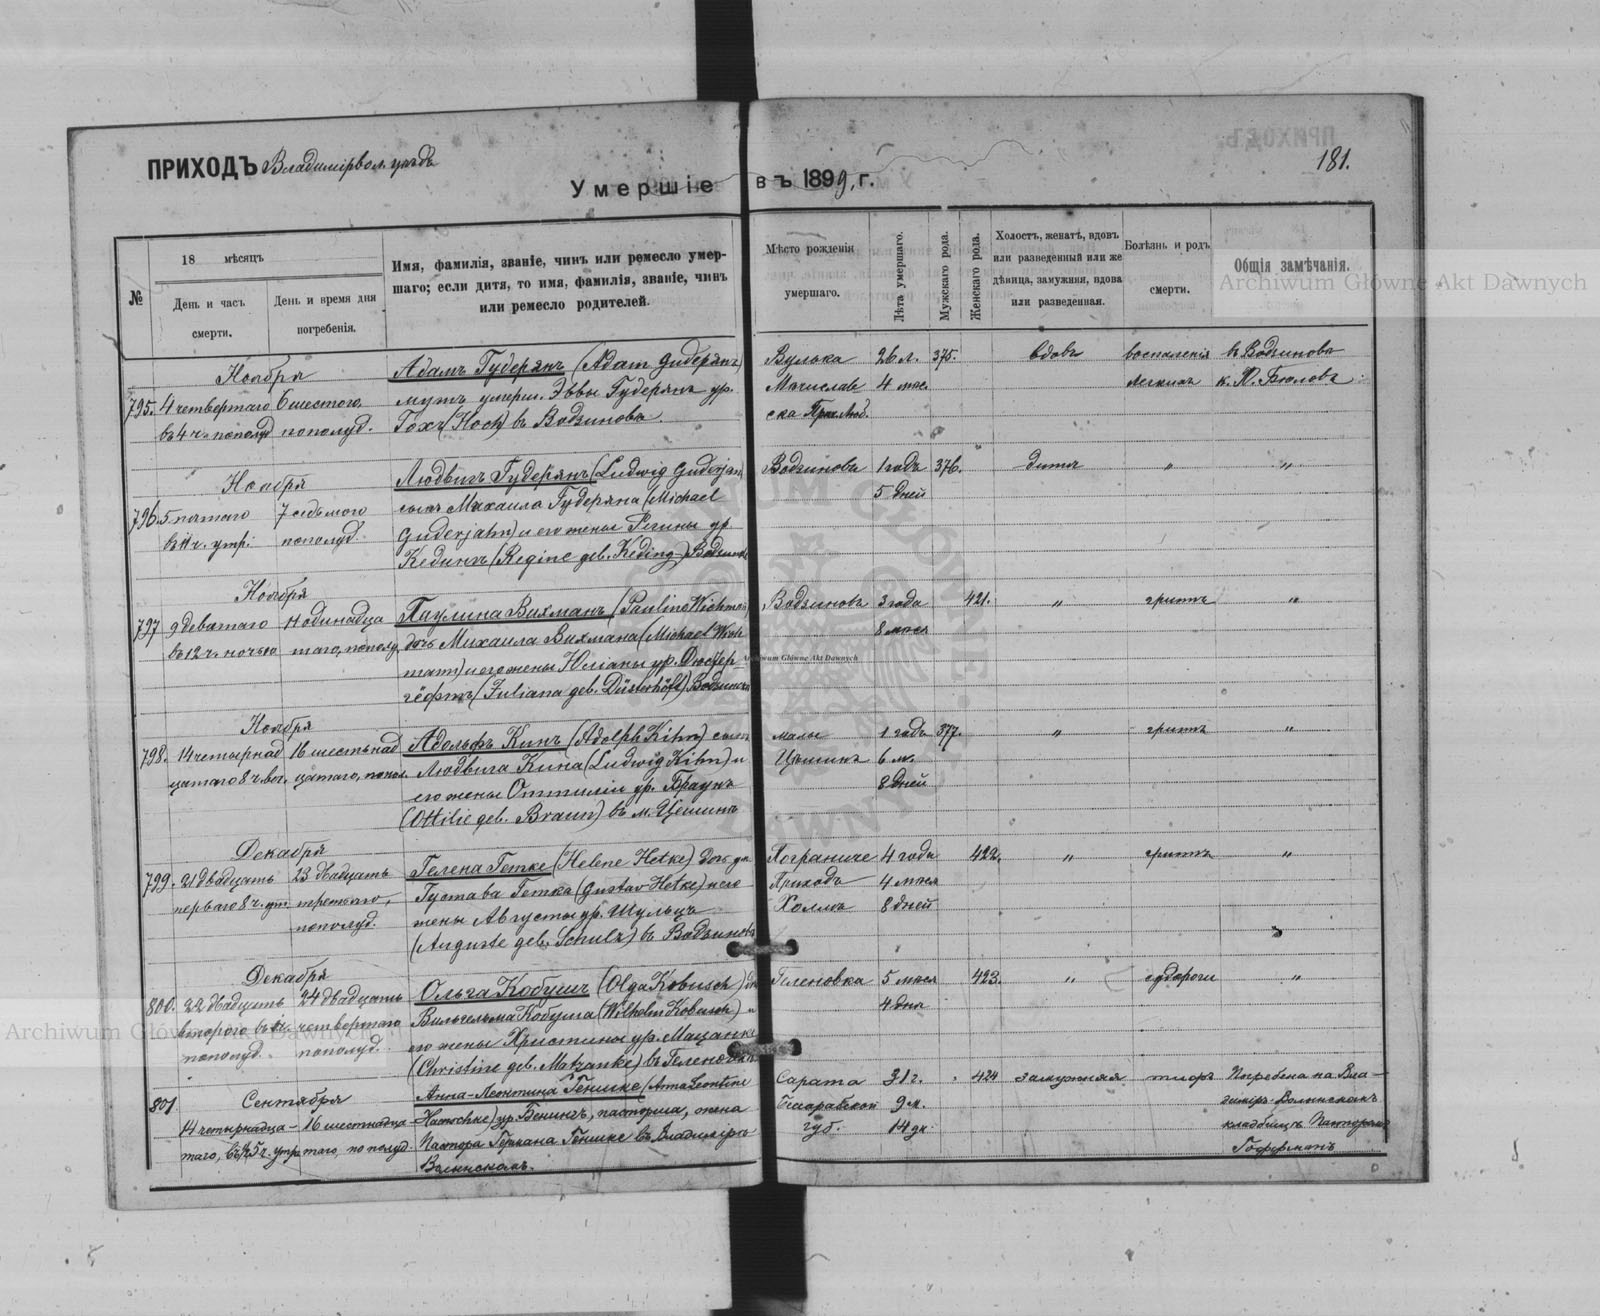 ПРИХОДЪ Владимірвол. уѣздъ
181.
Умершіе въ 1899, г.
№
18 мѣсяцъ
День и часъ смерти.
День и время дня погребенія.
Имя, фамилія, званіе, чинъ или ремесло умер-
шаго; если дитя, то имя, фамилія, званіе, чинъ
или ремесло родителей.
Мѣсто рожденія
умершаго.
Лѣта умершаго.
Мужскаго рода.
Женскаго рода.
Холостъ, женатъ, вдовъ
или разведенный или же
дѣвица, замужняя, вдова
или разведенная.
Болѣзнь и родъ
смерти.
Общія замѣчанія.
Archiwum Główne Akt Dawnych
Ноября
Адамъ Гудерянъ (Adam Guderjan)
Вулька 26 л. 375. вдовъ воспаленія въ Водзиновѣ
795. 4 четвертаго 6 шестого,
мужъ умерш. Эввы Гудерянъ ур.
4 мѣс. легкихъ к. Ю. Бюловъ
въ 4 ч. пополуд пополуд.
Гохъ (Hoch) въ Водзиновѣ.
ска
Ноября
Людвигъ Гудерянъ (Ludwig Guderjan)
Водзиновъ 1 годъ 376. дитя " "
796. 5 пятаго 7 седьмого
сынъ Михаила Гудеряна (Michael
5 дней
въ 11 ч. утр. пополуд.
Guderjahn) и его жены Регины ур
Кедингъ (Regine geb. Keding) Водзиновѣ
Ноября
Паулина Вихманъ (Pauline Wichman)
Водзиновъ 3 года 421. " грипъ "
797 9 девятаго 11 одинадца
дочь Михаила Вихмана (Michael Wich
8 мѣся
въ 12 ч. ночью таго, пополуд.
mann) и его жены Юліаны ур. Дюстер-
Archiwum Główne Akt Dawnych
гёфтъ (Juliana geb. Düsterhöft) Водзиновѣ
Ноября
Адольфъ Кинъ (Adolph Kihn) сынъ
малы 1 годъ 377. " грипъ "
798. 14 четырнад 16 шестьнад
Людвига Кина (Ludwig Kihn) и
Цѣшинъ 6 м.
цатаго 8 ч. веч. цатаго, попол.
его жены Оттиліи ур. Браунъ
8 дней
(Ottilie geb. Braun) въ м. Цешинъ
Декабря
Гелена Гетке (Helene Hetke) дочь
Пограниче 4 года 422. " грипъ "
799. 21 двадцать 23 двадцать
Густава Гетка (Gustav Hetke) и его
Приходъ 4 мѣся
перваго 8 ч. ут. третьяго,
жены Августы ур. Шульцъ
Холмъ 8 дней
пополуд.
(Auguste geb. Schulz) въ Водзиновѣ
Декабря
Ольга Кобушъ (Olga Kobusch)
Геленовка 5 мѣся 423. " судороги "
800. 22 двадцать 24 двадцать
Вильгельма Кобуша (Wilhelm Kobusch) и
4 дня
второго четвертаго
его жены Христины ур. Мацанке
пополуд. пополуд.
(Christine geb. Matzanke) въ Геленовкѣ
Archiwum Główne Akt Dawnych
801 Сентября
Анна-Леонтина Генишке (Anna Leontine
Сарата 31 г. 424 замужняя тифъ Погребена на Вла-
14 четырнадца- 16 шестнадца-
ур. Бенингъ, пасторша, жена
Бессарабской 9 м. диміръ-Волынскомъ
таго, утра таго, по полуд.
Пастора Германа Генишке въ Владимірѣ
губ. 14 дн. кладбищѣ Пасторомъ
Волынскомъ.
Гоффманъ